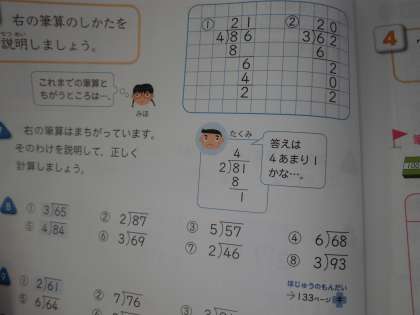 右の筆算のしかたを
説明しましょう。
せつめい
これまでの筆算と
ちがうところは…。
みほ
① 21
4)86
8
6
4
2
② 20
3)62
6
2
0
2
4
右の筆算はまちがっています。
そのわけを説明して、正しく
計算しましょう。
たくみ
4
2)81
8
1
答えは
4あまり1
かな…。
8
① 3)65
② 2)87
③ 5)57
④ 6)68
⑤ 4)84
⑥ 3)69
⑦ 2)46
⑧ 3)93
ほじゅうのもんだい
→133ページ
9
① 2)61
② 7)76
③
⑤ 6)64